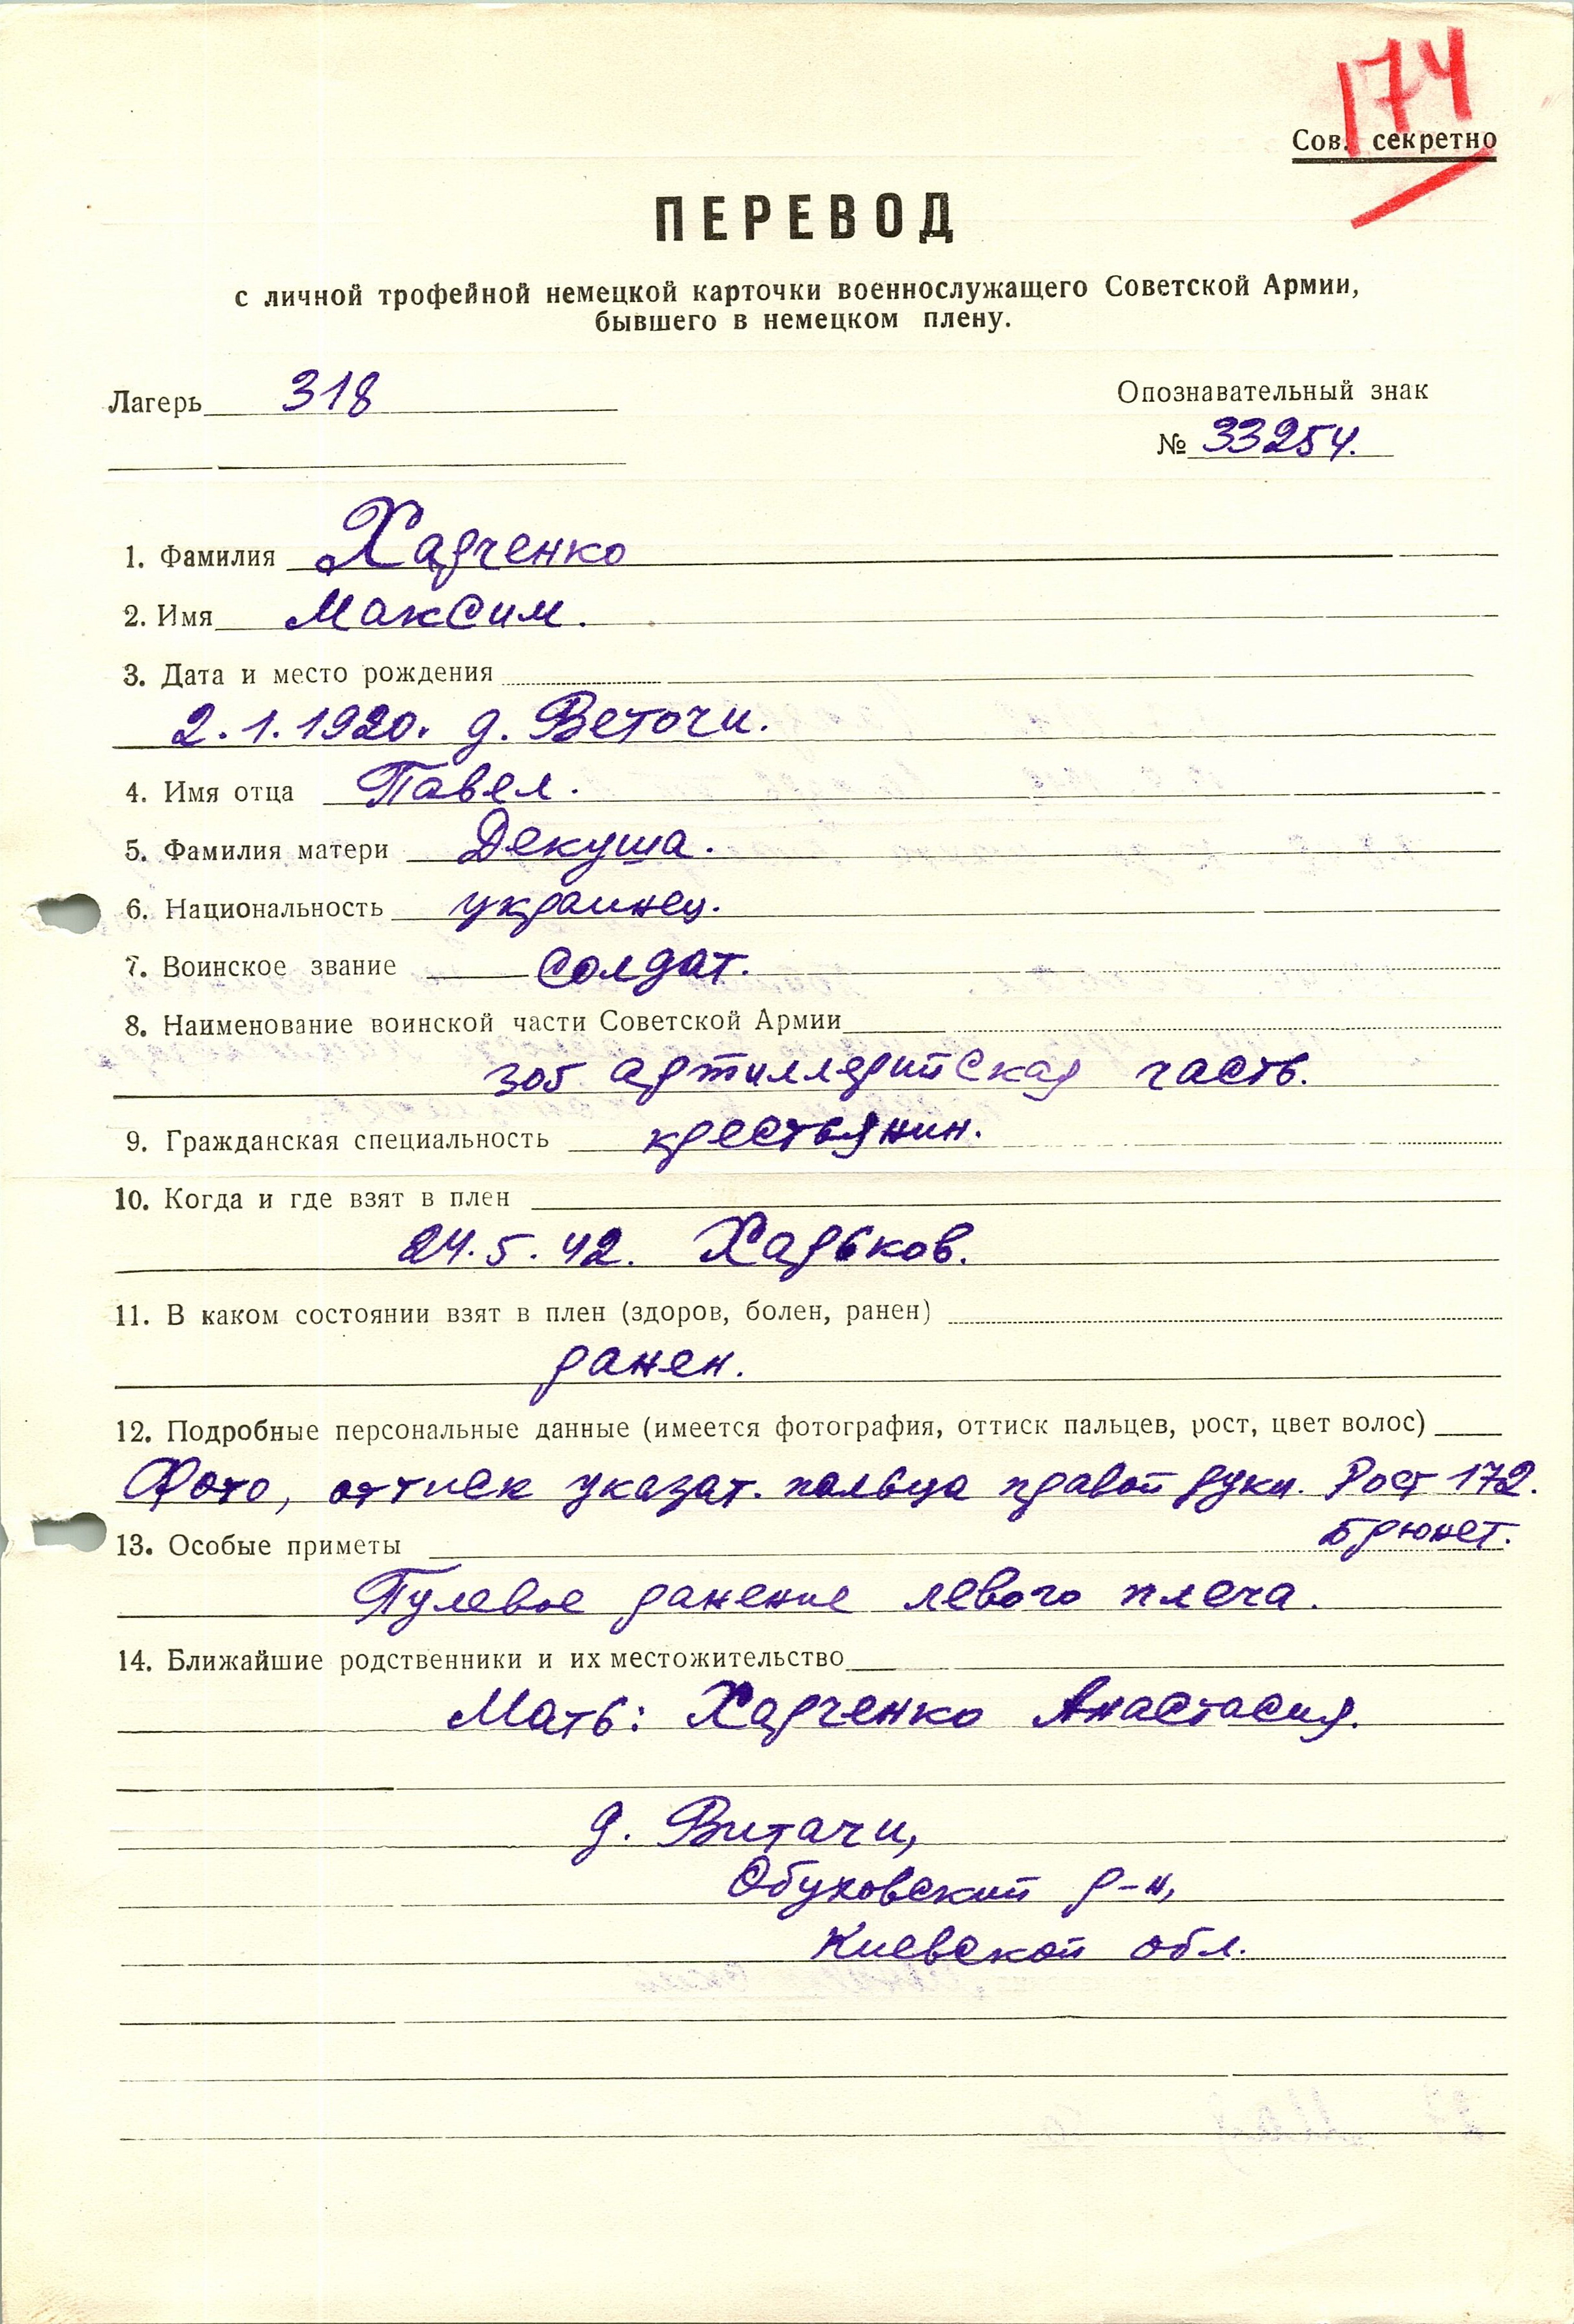 174
Сов. секретно
ПЕРЕВОД
с личной трофейной немецкой карточки военнослужащего Советской Армии,
бывшего в немецком плену.
Лагерь 318
Опознавательный знак
№ 33254.
1. Фамилия Харченко
2. Имя Максим.
3. Дата и место рождения
2.1.1920. д. Веточи.
4. Имя отца Павел.
5. Фамилия матери Декуша.
6. Национальность украинец.
7. Воинское звание солдат.
8. Наименование воинской части Советской Армии
305 артиллерийская часть.
9. Гражданская специальность крестьянин.
10. Когда и где взят в плен
24.5.42. Харьков.
11. В каком состоянии взят в плен (здоров, болен, ранен)
ранен.
12. Подробные персональные данные (имеется фотография, оттиск пальцев, рост, цвет волос)
Фото, оттиск указат. пальца правой руки. Рост 172.
Брюнет.
13. Особые приметы
Пулевое ранение левого плеча.
14. Ближайшие родственники и их местожительство
Мать: Харченко Анастасия.
д. Витачи,
Обуховский р-н,
Киевской обл.